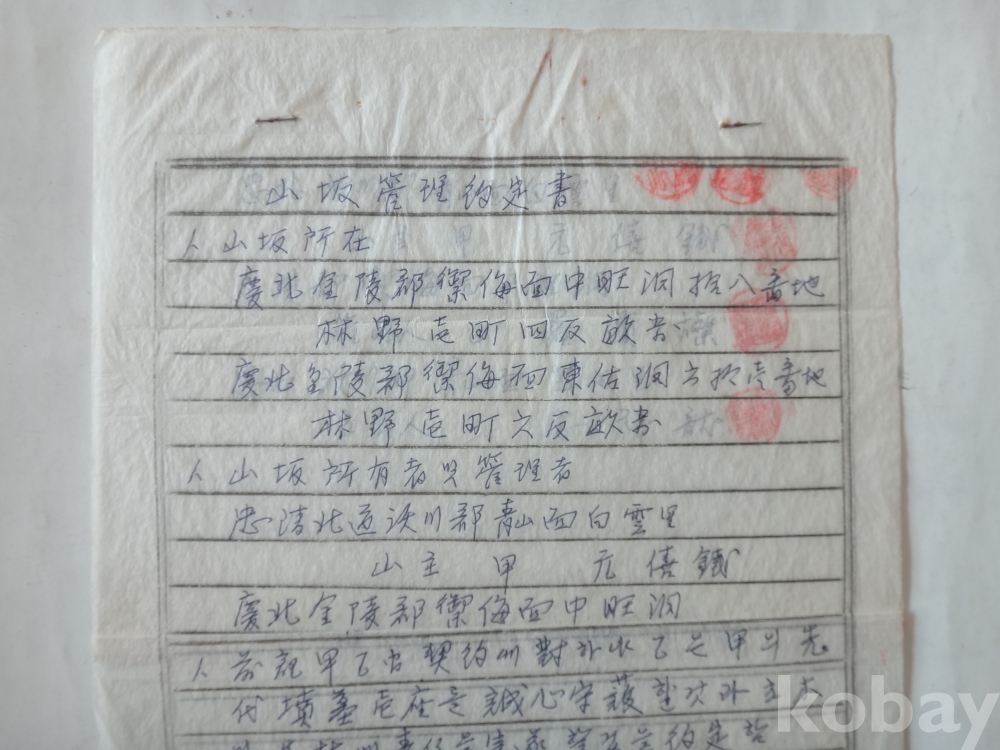 山坂管理約定書
人山坂所在
慶北金陵郡禦侮面中旺洞拾八番地
林野壱町四反畝步
慶北金陵郡禦侮面東佐洞六拾壱番地
林野壱町六反畝步
人山坂所有者와管理者
忠清北道沃川郡青山面白雲里
山主 甲 元僖鐵
慶北金陵郡禦侮面中旺洞
人前記甲乙 契約에對하야乙은甲의先
代墳墓壱座을誠心守護할것과
約定
kobay